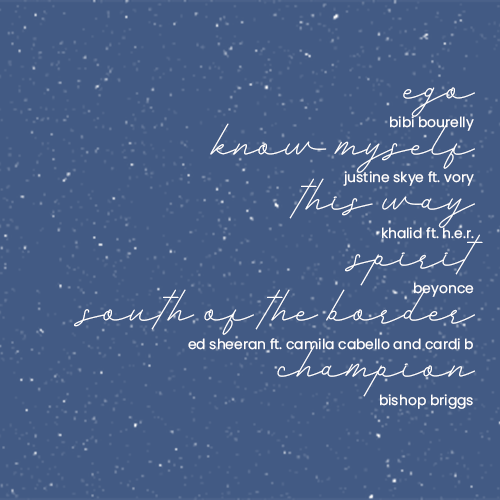 ego
bibi bourelly
know myself
justine skye ft. vory
this way
khalid ft. h.e.r.
spirit
beyonce
south of the border
ed sheeran ft. camila cabello and cardi b
champion
bishop briggs